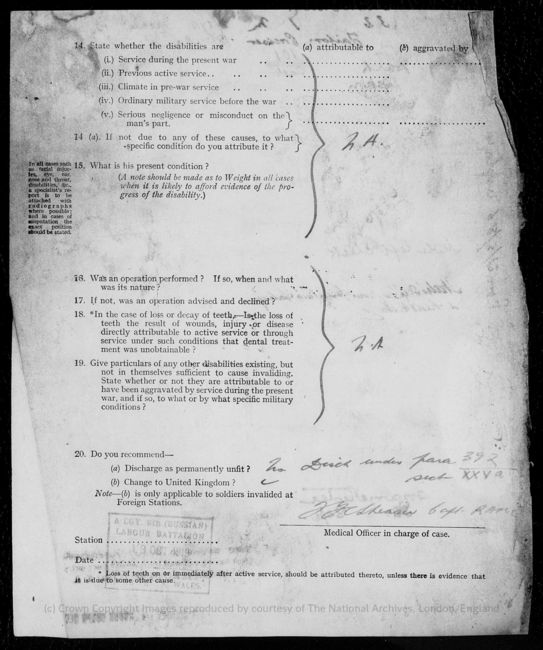 14. State whether the disabilities are (a) attributable to (b) aggravated by
(i.) Service during the present war .. ..
(ii.) Previous active service.. .. .. ..
(iii.) Climate in pre-war service .. ..
(iv.) Ordinary military service before the war ..
(v.) Serious negligence or misconduct on the
man's part.
14 (a). If not due to any of these causes, to what
specific condition do you attribute it ?
N.A.
In all cases such
as facial injur-
ies, eye, ear,
nose and throat,
disabilities, &c.,
a specialist's re-
port is to be
attached with
radiographs
where possible;
and in cases of
amputation the
exact position
should be stated.
15. What is his present condition ?
(A note should be made as to Weight in all cases
when it is likely to afford evidence of the pro-
gress of the disability.)
16. Was an operation performed ? If so, when and what
was its nature ?
17. If not, was an operation advised and declined ?
18. *In the case of loss or decay of teeth,—Is the loss of
teeth the result of wounds, injury or disease
directly attributable to active service or through
service under such conditions that dental treat-
ment was unobtainable ?
N.A
19. Give particulars of any other disabilities existing, but
not in themselves sufficient to cause invaliding.
State whether or not they are attributable to or
have been aggravated by service during the present
war, and if so, to what or by what specific military
conditions ?
20. Do you recommend—
(a) Discharge as permanently unfit ? No Disch under para 392
sect XXVa
(b) Change to United Kingdom ?
Note—(b) is only applicable to soldiers invalided at
Foreign Stations.
Capt. R.A.M.C
Medical Officer in charge of case.
(RUSSIAN)
LABOUR BATTALION
Station
Date
WALES.
* Loss of teeth on or immediately after active service, should be attributed thereto, unless there is evidence that
it is due to some other cause.
(c) Crown Copyright Images reproduced by courtesy of The National Archives, London, England